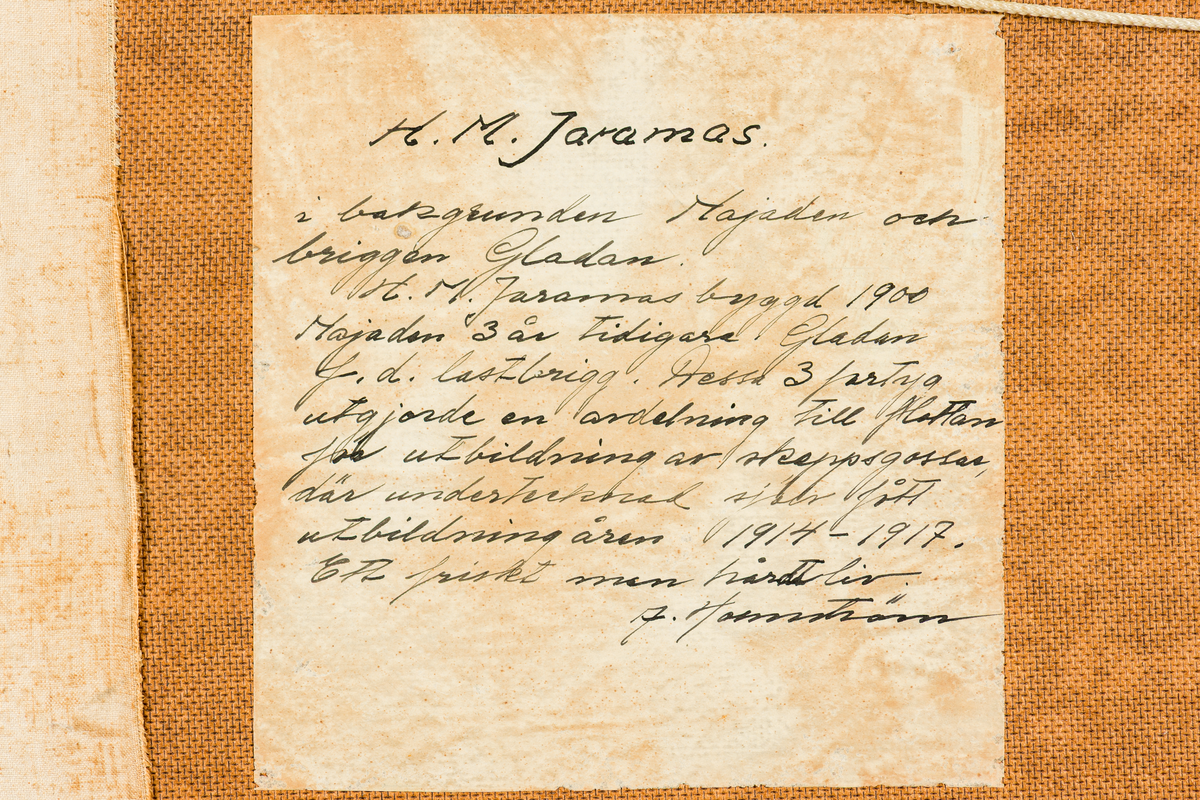 H. M. Jaramas.
i bakgrunden Najaden och
briggen Gladan.
H. M. Jaramas byggd 1900
Najaden 3 år tidigare Gladan
f. d. lastbrigg. Dessa 3 fartyg
utgjorde en avdelning till flottan
för utbildning av skeppsgossar,
där undertecknad själv fått
utbildning åren 1914-1917.
Ett friskt men hårdt liv.
A. Holmström